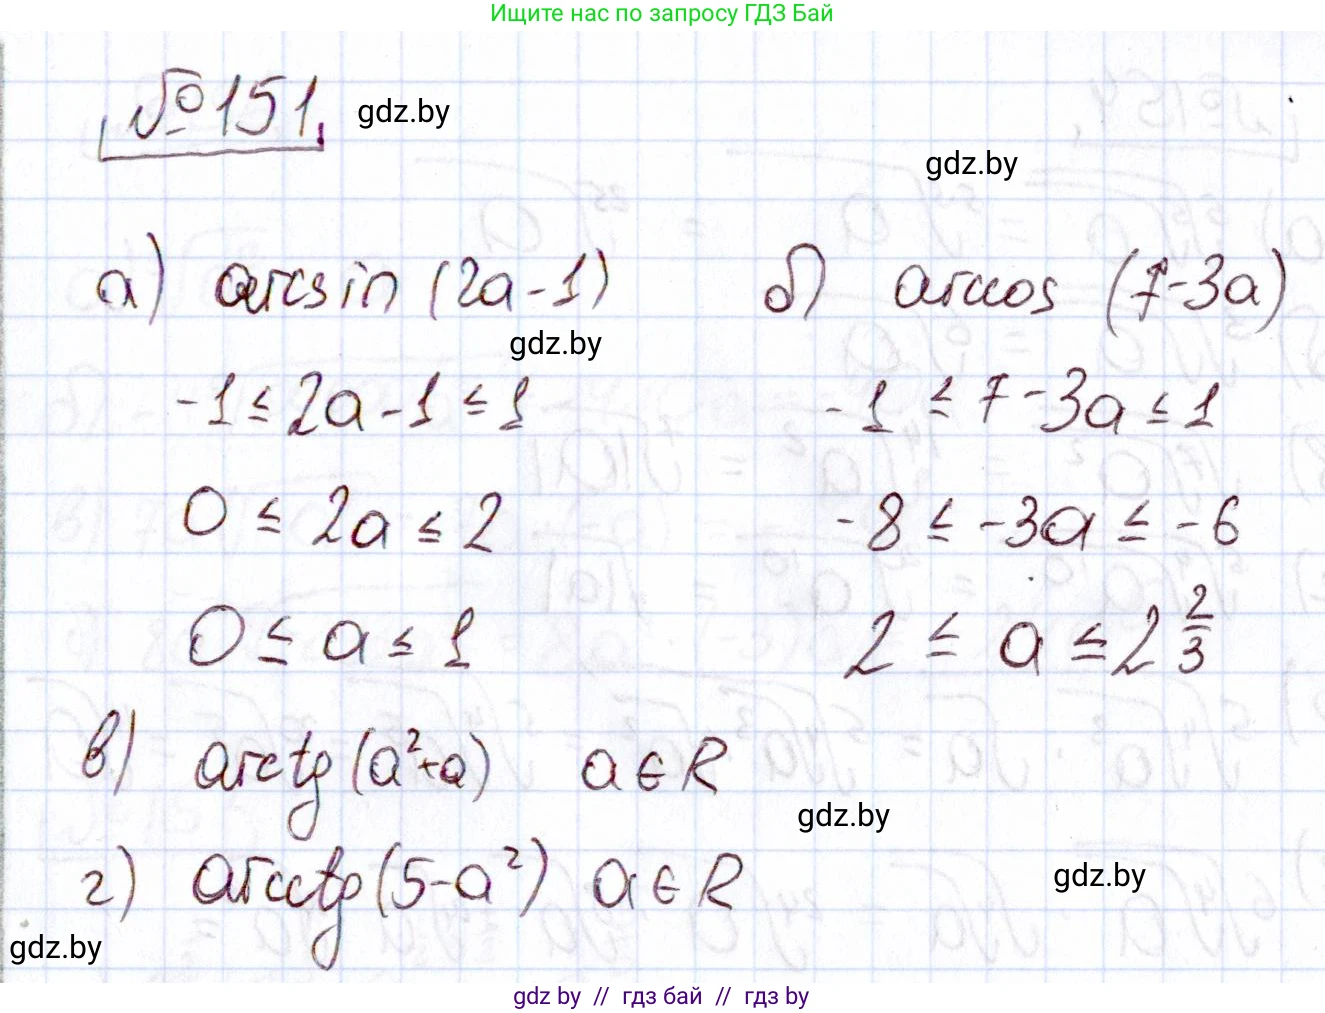 Ищите нас по запросу ГДЗ Бай
№151
gdz.by
gdz.by
а) arcsin (2a-1)
б) arccos (7-3a)
gdz.by
-1 ≤ 2a-1 ≤ 1
-1 ≤ 7-3a ≤ 1
0 ≤ 2a ≤ 2
-8 ≤ -3a ≤ -6
0 ≤ a ≤ 1
2 ≤ a ≤ 2 2/3
в) arctg (a²+a) a ∈ R
gdz.by
г) arcctg (5-a²) a ∈ R
gdz.by
gdz.by
gdz by // гдз бай // гдз by